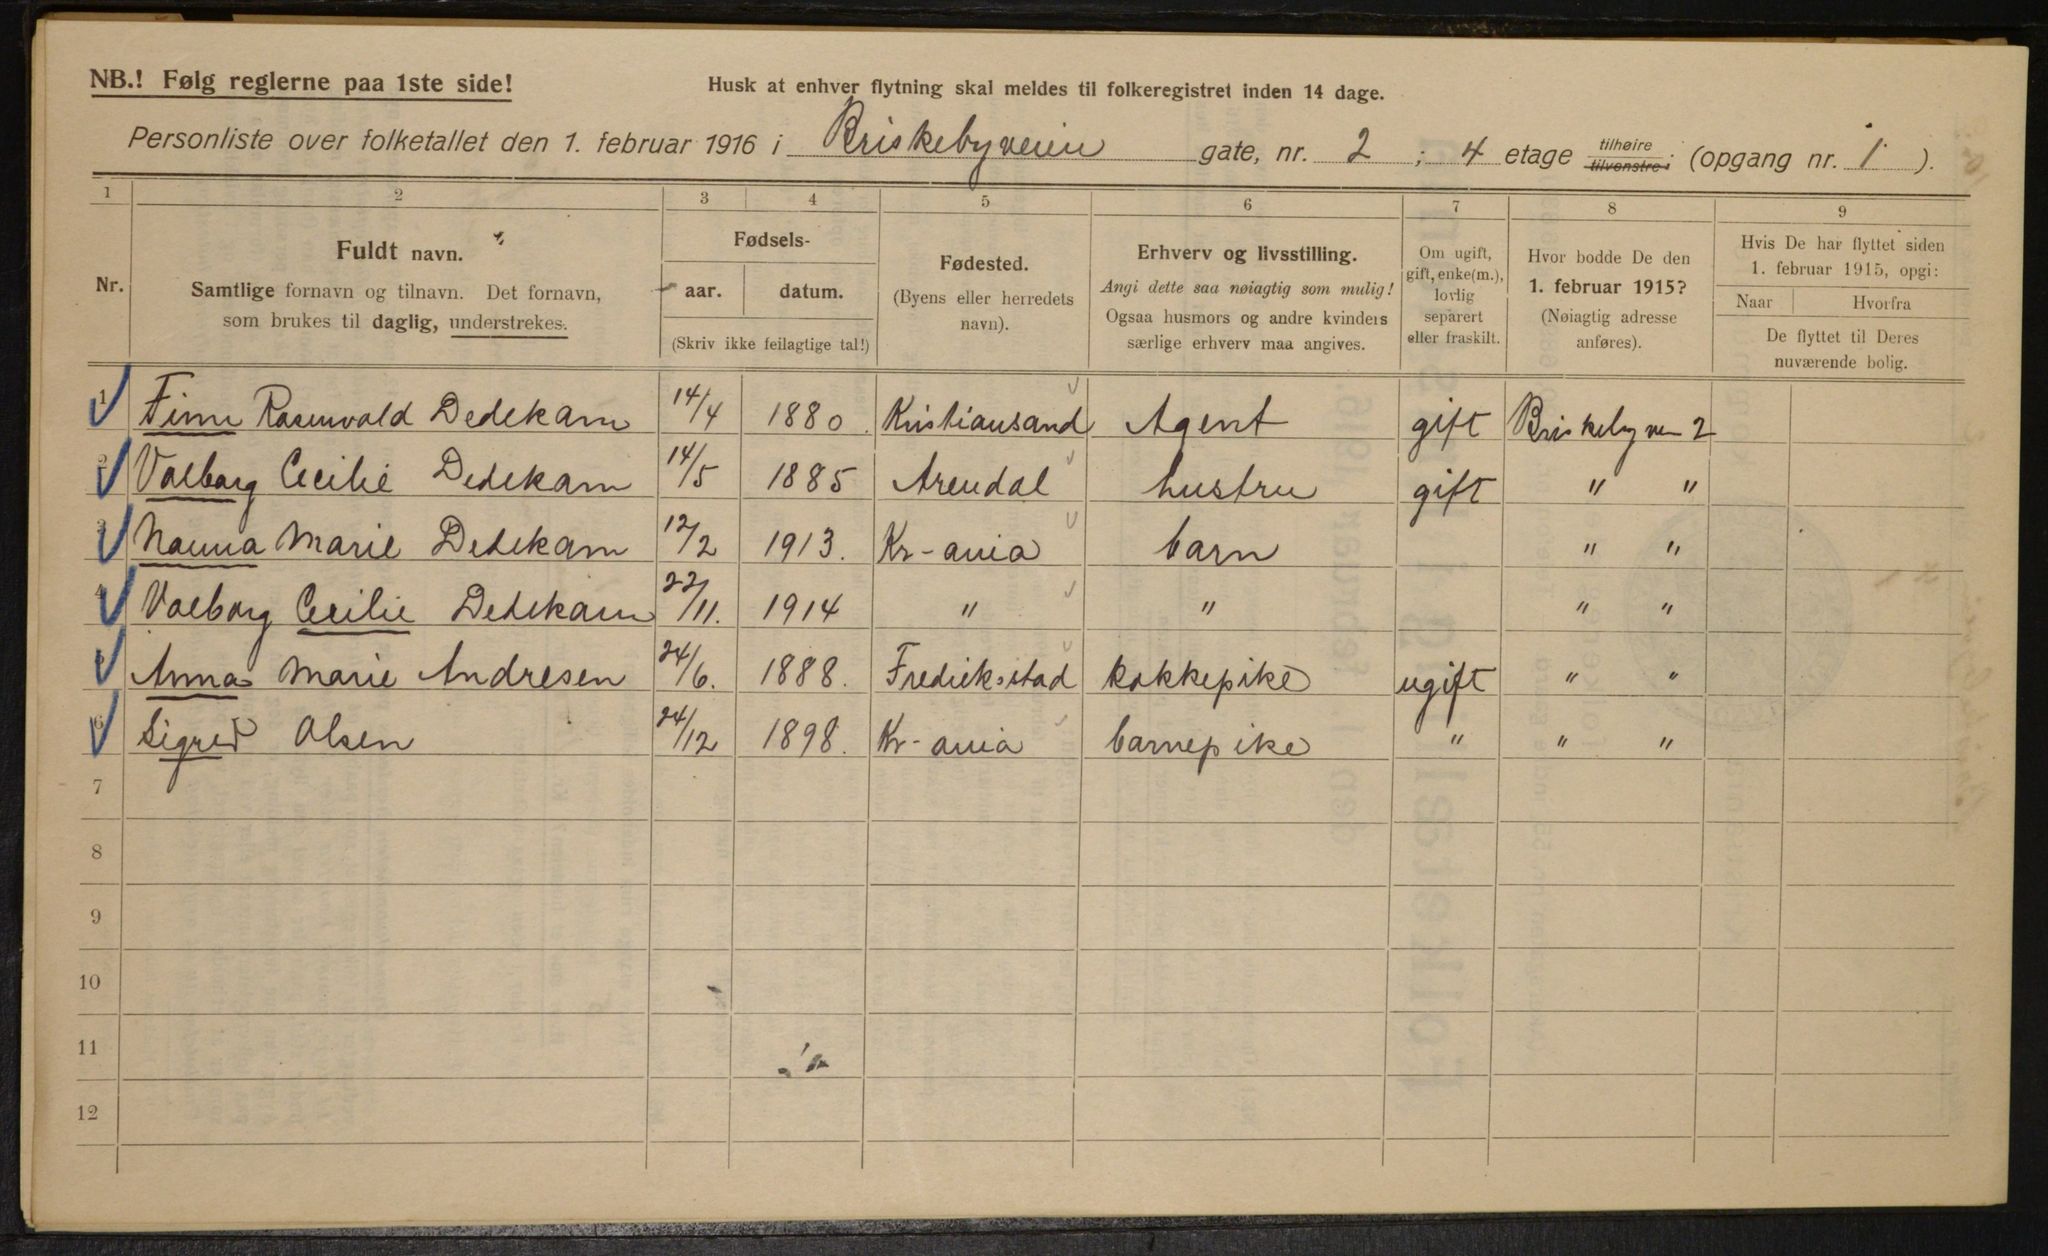 NB.! Følg reglerne paa 1ste side!
Husk at enhver flytning skal meldes til folkeregistret inden 14 dage.
Personliste over folketallet den 1. februar 1916 i Briskebyveien gate, nr. 2 ; 4 etage tilhøire tilvenstre (opgang nr. 1 ).
1 2 3 4 5 6 7 8 9
Nr.
Fuldt navn.
Samtlige fornavn og tilnavn. Det fornavn,
som brukes til daglig, understrekes.
Fødsels-
aar. datum.
(Skriv ikke feilagtige tal!)
Fødested.
(Byens eller herredets
navn).
Erhverv og livsstilling.
Angi dette saa nøiagtig som mulig!
Ogsaa husmors og andre kvinders
særlige erhverv maa angives.
Om ugift,
gift, enke(m.),
lovlig
separert
eller fraskilt.
Hvor bodde De den
1. februar 1915?
(Nøiagtig adresse
anføres).
Hvis De har flyttet siden
1. februar 1915, opgi:
Naar Hvorfra
De flyttet til Deres
nuværende bolig.
1 Finn Rosenvold Dedekam 14/4 1880 Kristiansand Agent gift Briskebyvei 2
2 Valborg Cecilie Dedekam 14/5 1885 Arendal hustru gift " "
3 Nanna Marie Dedekam 12/2 1913. Kr-ania barn " "
4 Valborg Cecilie Dedekam 22/11. 1914 " " " "
5 Anna Marie Andresen 24/6. 1888. Fredriksstad kokkepike ugift " "
6 Sigrid Olsen 24/12 1898. Kr-ania barnepike " " "
7
8
9
10
11
12